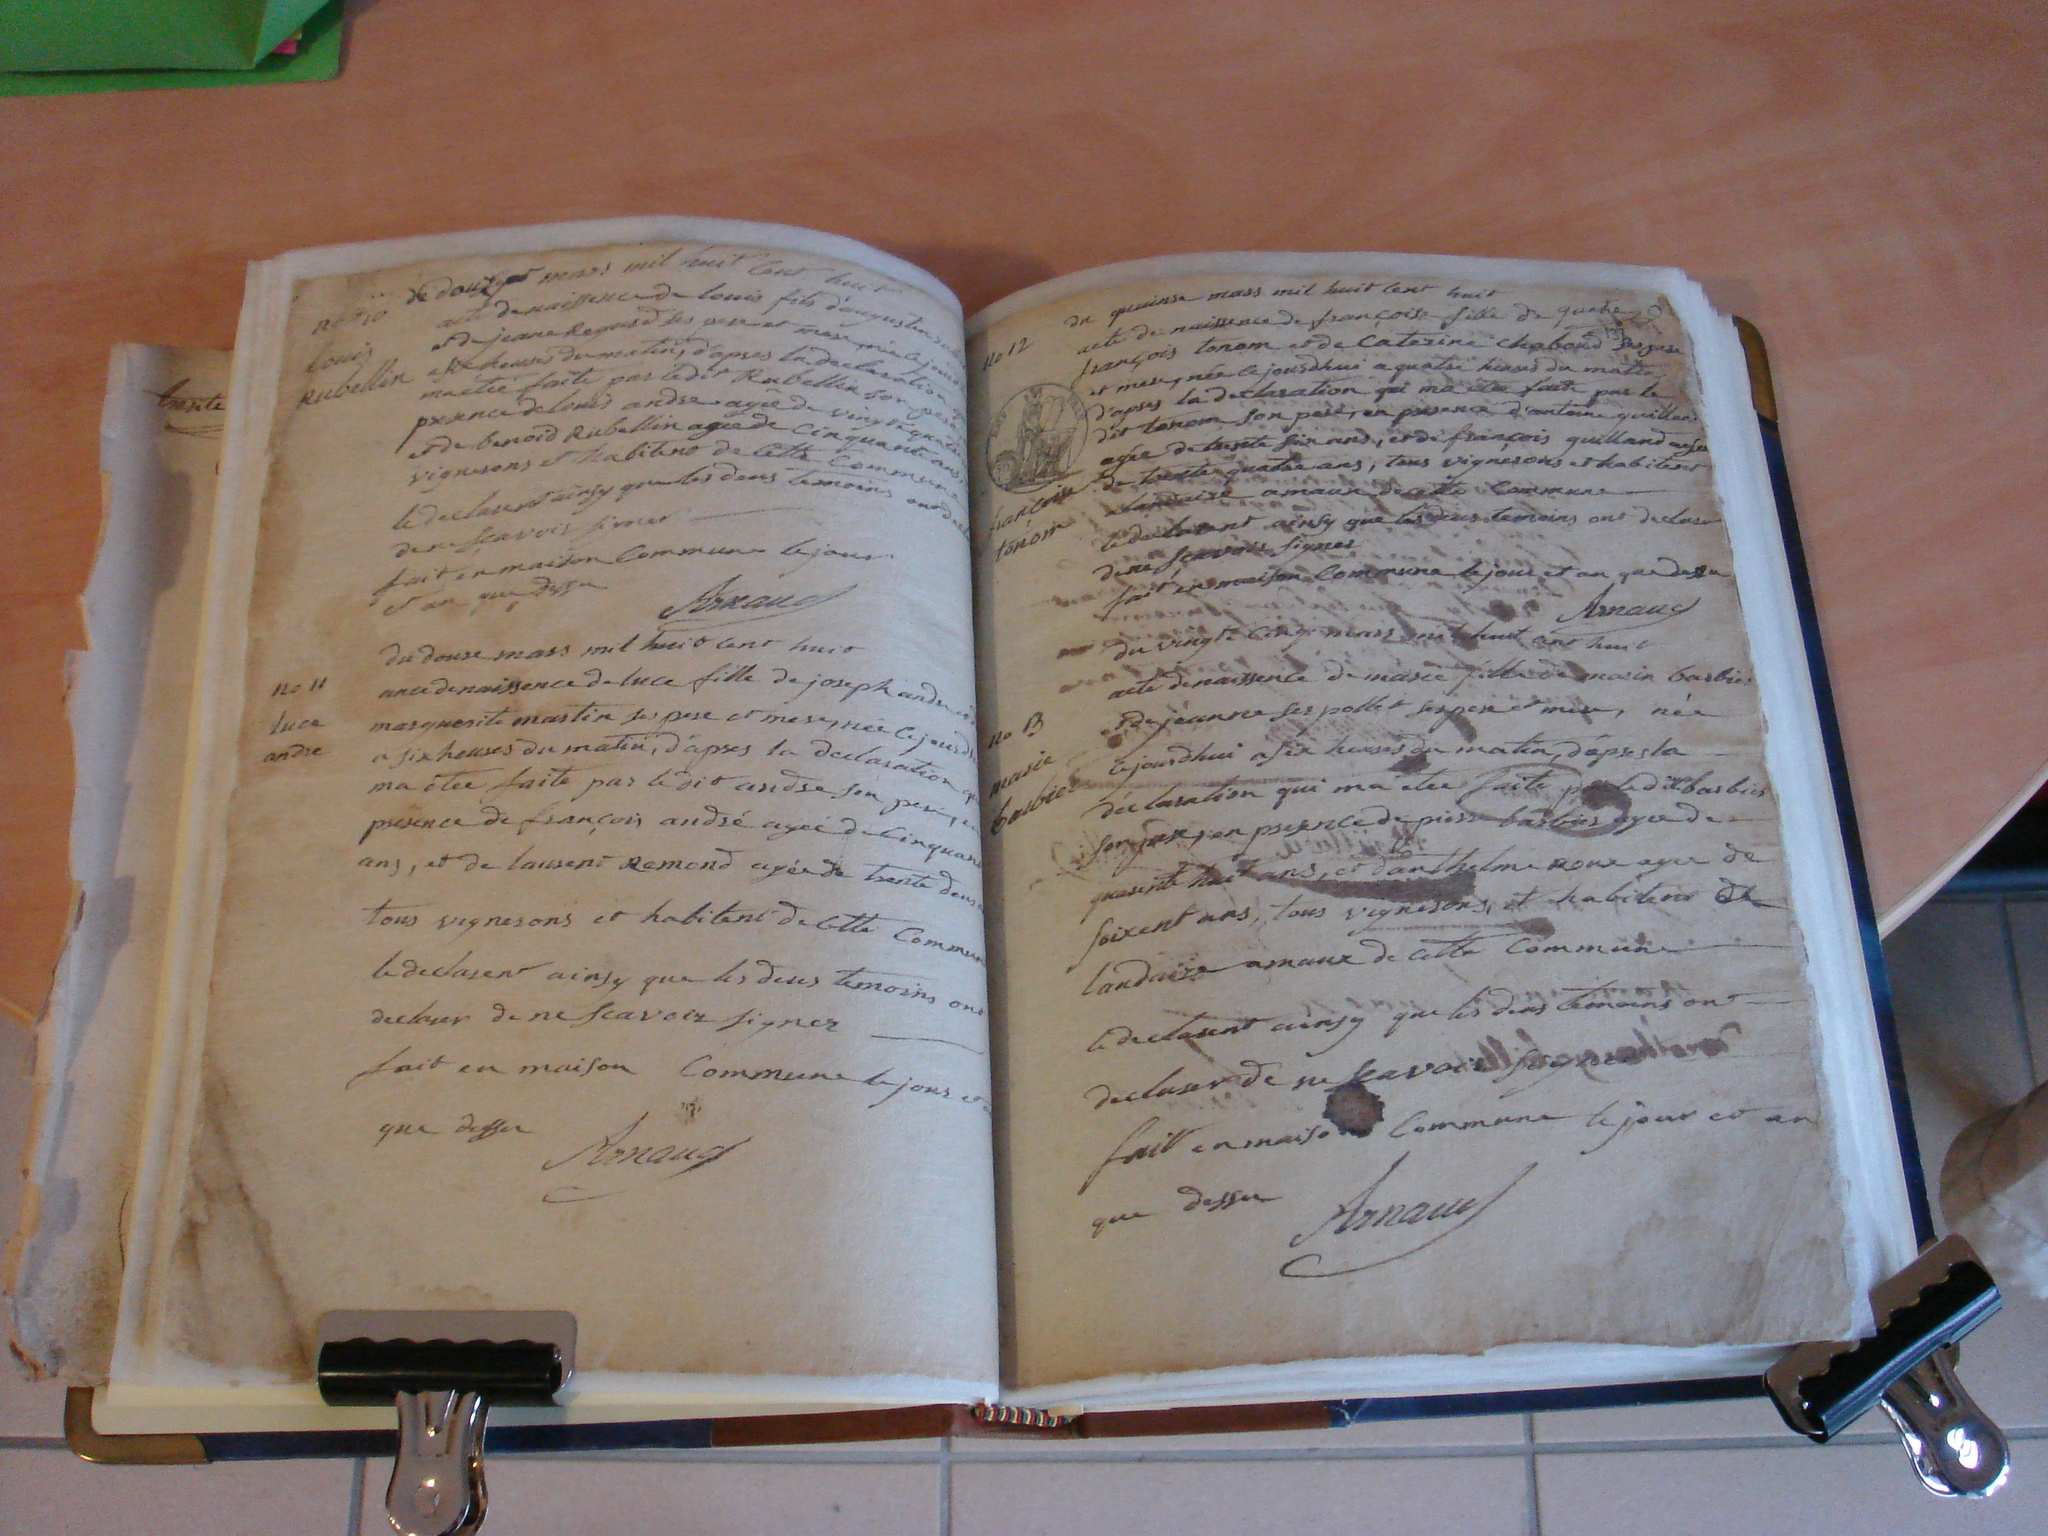 trente
no 10
Louis
Rubellin
de douze mars mil huit Cent huit
acte de naissence de louis fils d'augustin
et de jeane Renard ses pere et mere, née le jourd
a six heuses du matin, d'apres la declaration
ma eteé faite par le dit Rubellin son pere
presence de louis andre agee de vingt quatre
et de benoid Rubellin ageé de Cinquante ans
vignerons et habitent de Cette Commune
le declarent ainsy que les deus temoins ont decla
de ne scavoir signer
fait en maison Commune le jour
et an que dessu
Arnaud
no 11
luce
andre
du douse mars mil huit cent huit
acte de naissence de luce fille de joseph andre et
marguerite martin ses pere et mere, née le jourd
a six heuses du matin, d'apres la declaration qu
ma étee faite par le dit andre son pere, en
presence de françois andré ageé de Cinquan
ans, et de laurent Remond agée de trente deus
tous vignerons et habitent de Cette Commun
le declarent ainsy que les deus temoins ont
declarer de ne scavoir signer
fait en maison Commune le jour et
que dessu
Arnaud
no 12
françoise
tonom
du quinse mars mil huit cent huit
acte de naissence de françoise fille de
françois tonom et de Caterine Chaboud ses pere
et mere, née le jourdhui a quatre heuses du matin
d'apres la declaration qui ma etée fait par le
dit tonom son pere, en presence d'antoine quilland
ageé de trente six ans, et de françois quilland ageé
de trente quatre ans, tous vignerons et habitent
landaize amaux de cette Commune
le declarent ainsy que les deus temoins ont declarer
de ne scavoir signer
fait en maison Commune le jour et an que dessu
Arnaud
no 13
marie
barbier
du vingt Cinq mars mil huit cent huit
acte denaissence de marie fille de marin barbier
et de jeanne ses pere et mere, née
le jourdhui a six heuses du matin, d'apres la
declaration qui ma etee faite par le dit barbier
son pere, en presence de piere barbier agee de
quarente huit ans, et d'anthelme roux agee de
soixent ans, tous vignerons, et habitent de
landaize amaux de cette Commune
le declarent ainsy que les deus temoins ont
declarer de ne scavoir signer
fait en maison Commune le jour et an
que dessu
Arnaud